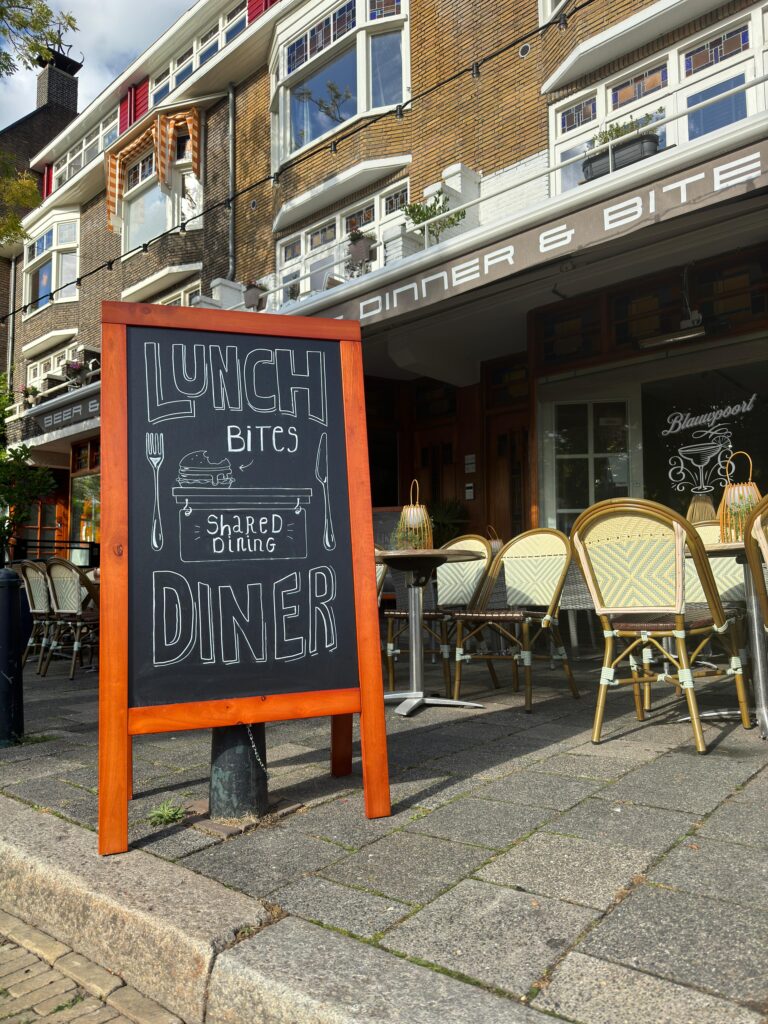 DINNER & BITE
BEER &
LUNCH
BITES
SHARED
DINING
DINER
Blauwpoort